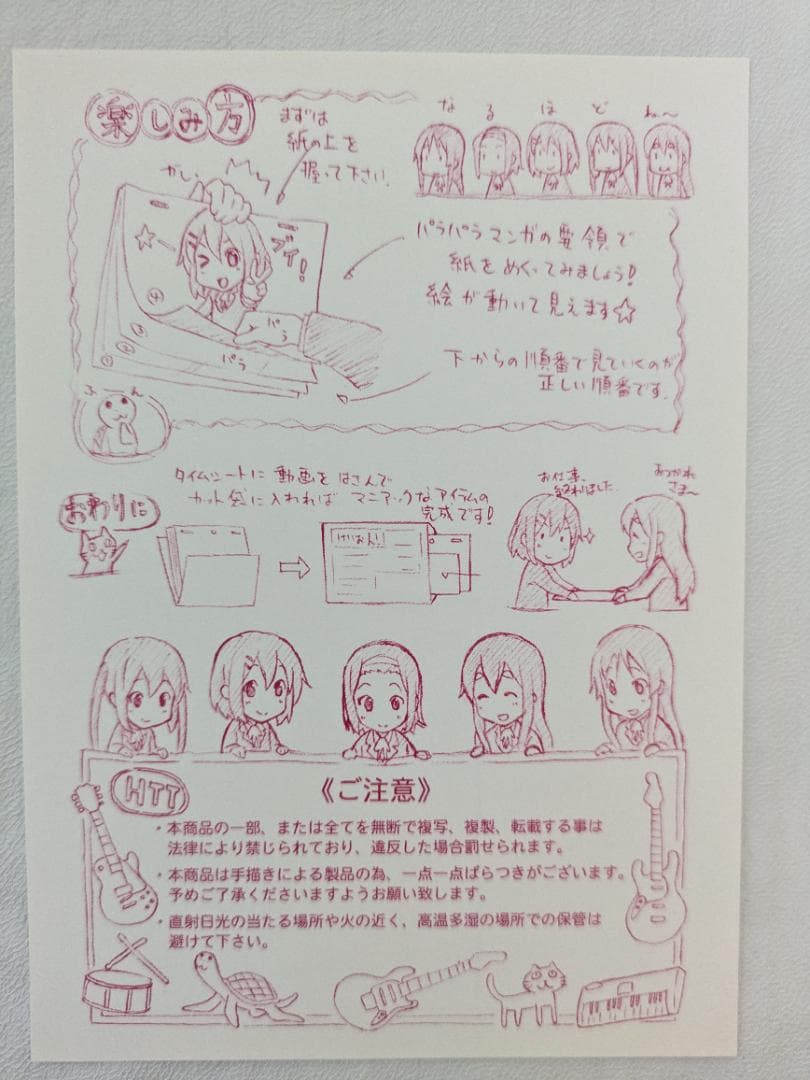 楽しみ方
まずは
紙の上を
握って下さい。
なるほどねぇ〜
ブイ!
パラパラマンガの要領で
紙をめくってみましょう!
絵が動いて見えます☆
パラ
パラ
④
③
②
①
下からの順番で見ていくのが
正しい順番です。
おわりに
タイムシートに動画をはさんで
カット袋に入れれば マニアックなアイテムの
完成です!
けいおん!
お仕事、
終わりました
おつかれ
さま〜
HTT
《ご注意》
・本商品の一部、または全てを無断で複写、複製、転載する事は
法律により禁じられており、違反した場合罰せられます。
・本商品は手描きによる製品の為、一点一点ばらつきがございます。
予めご了承くださいますようお願い致します。
・直射日光の当たる場所や火の近く、高温多湿の場所での保管は
避けて下さい。